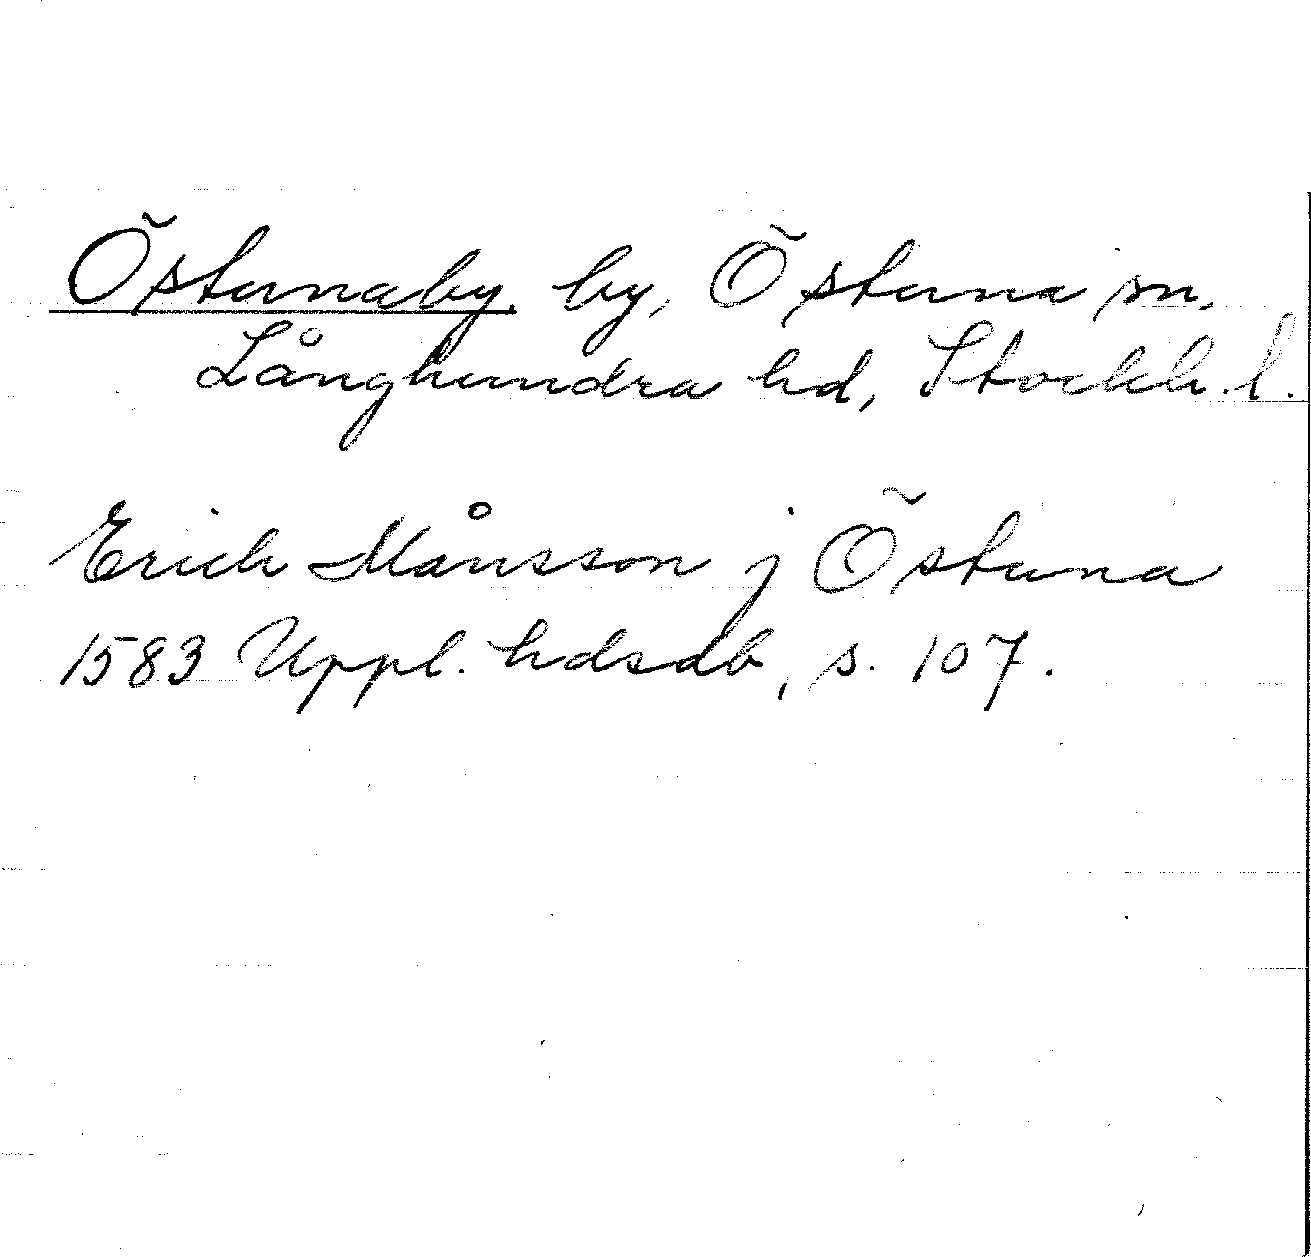 Östunaby, by, Östuna sn,
Långhundra hd, Stockh. l.
Erich Månsson j Östuna
1583 Uppl. hdsdb, s. 107.